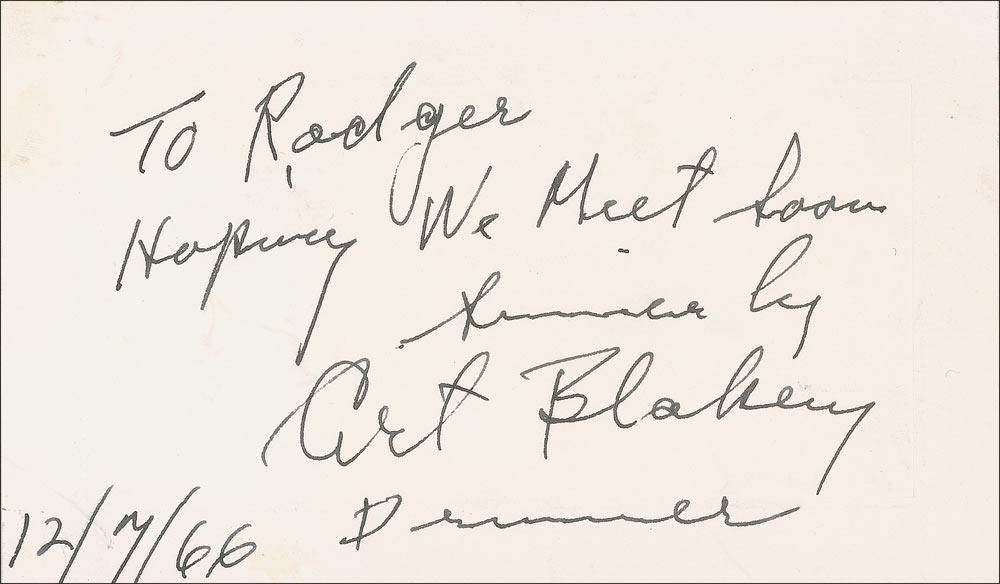 To Rodger
Hoping We Meet Soon
Sincerely
Art Blakey
Drummer
12/7/66